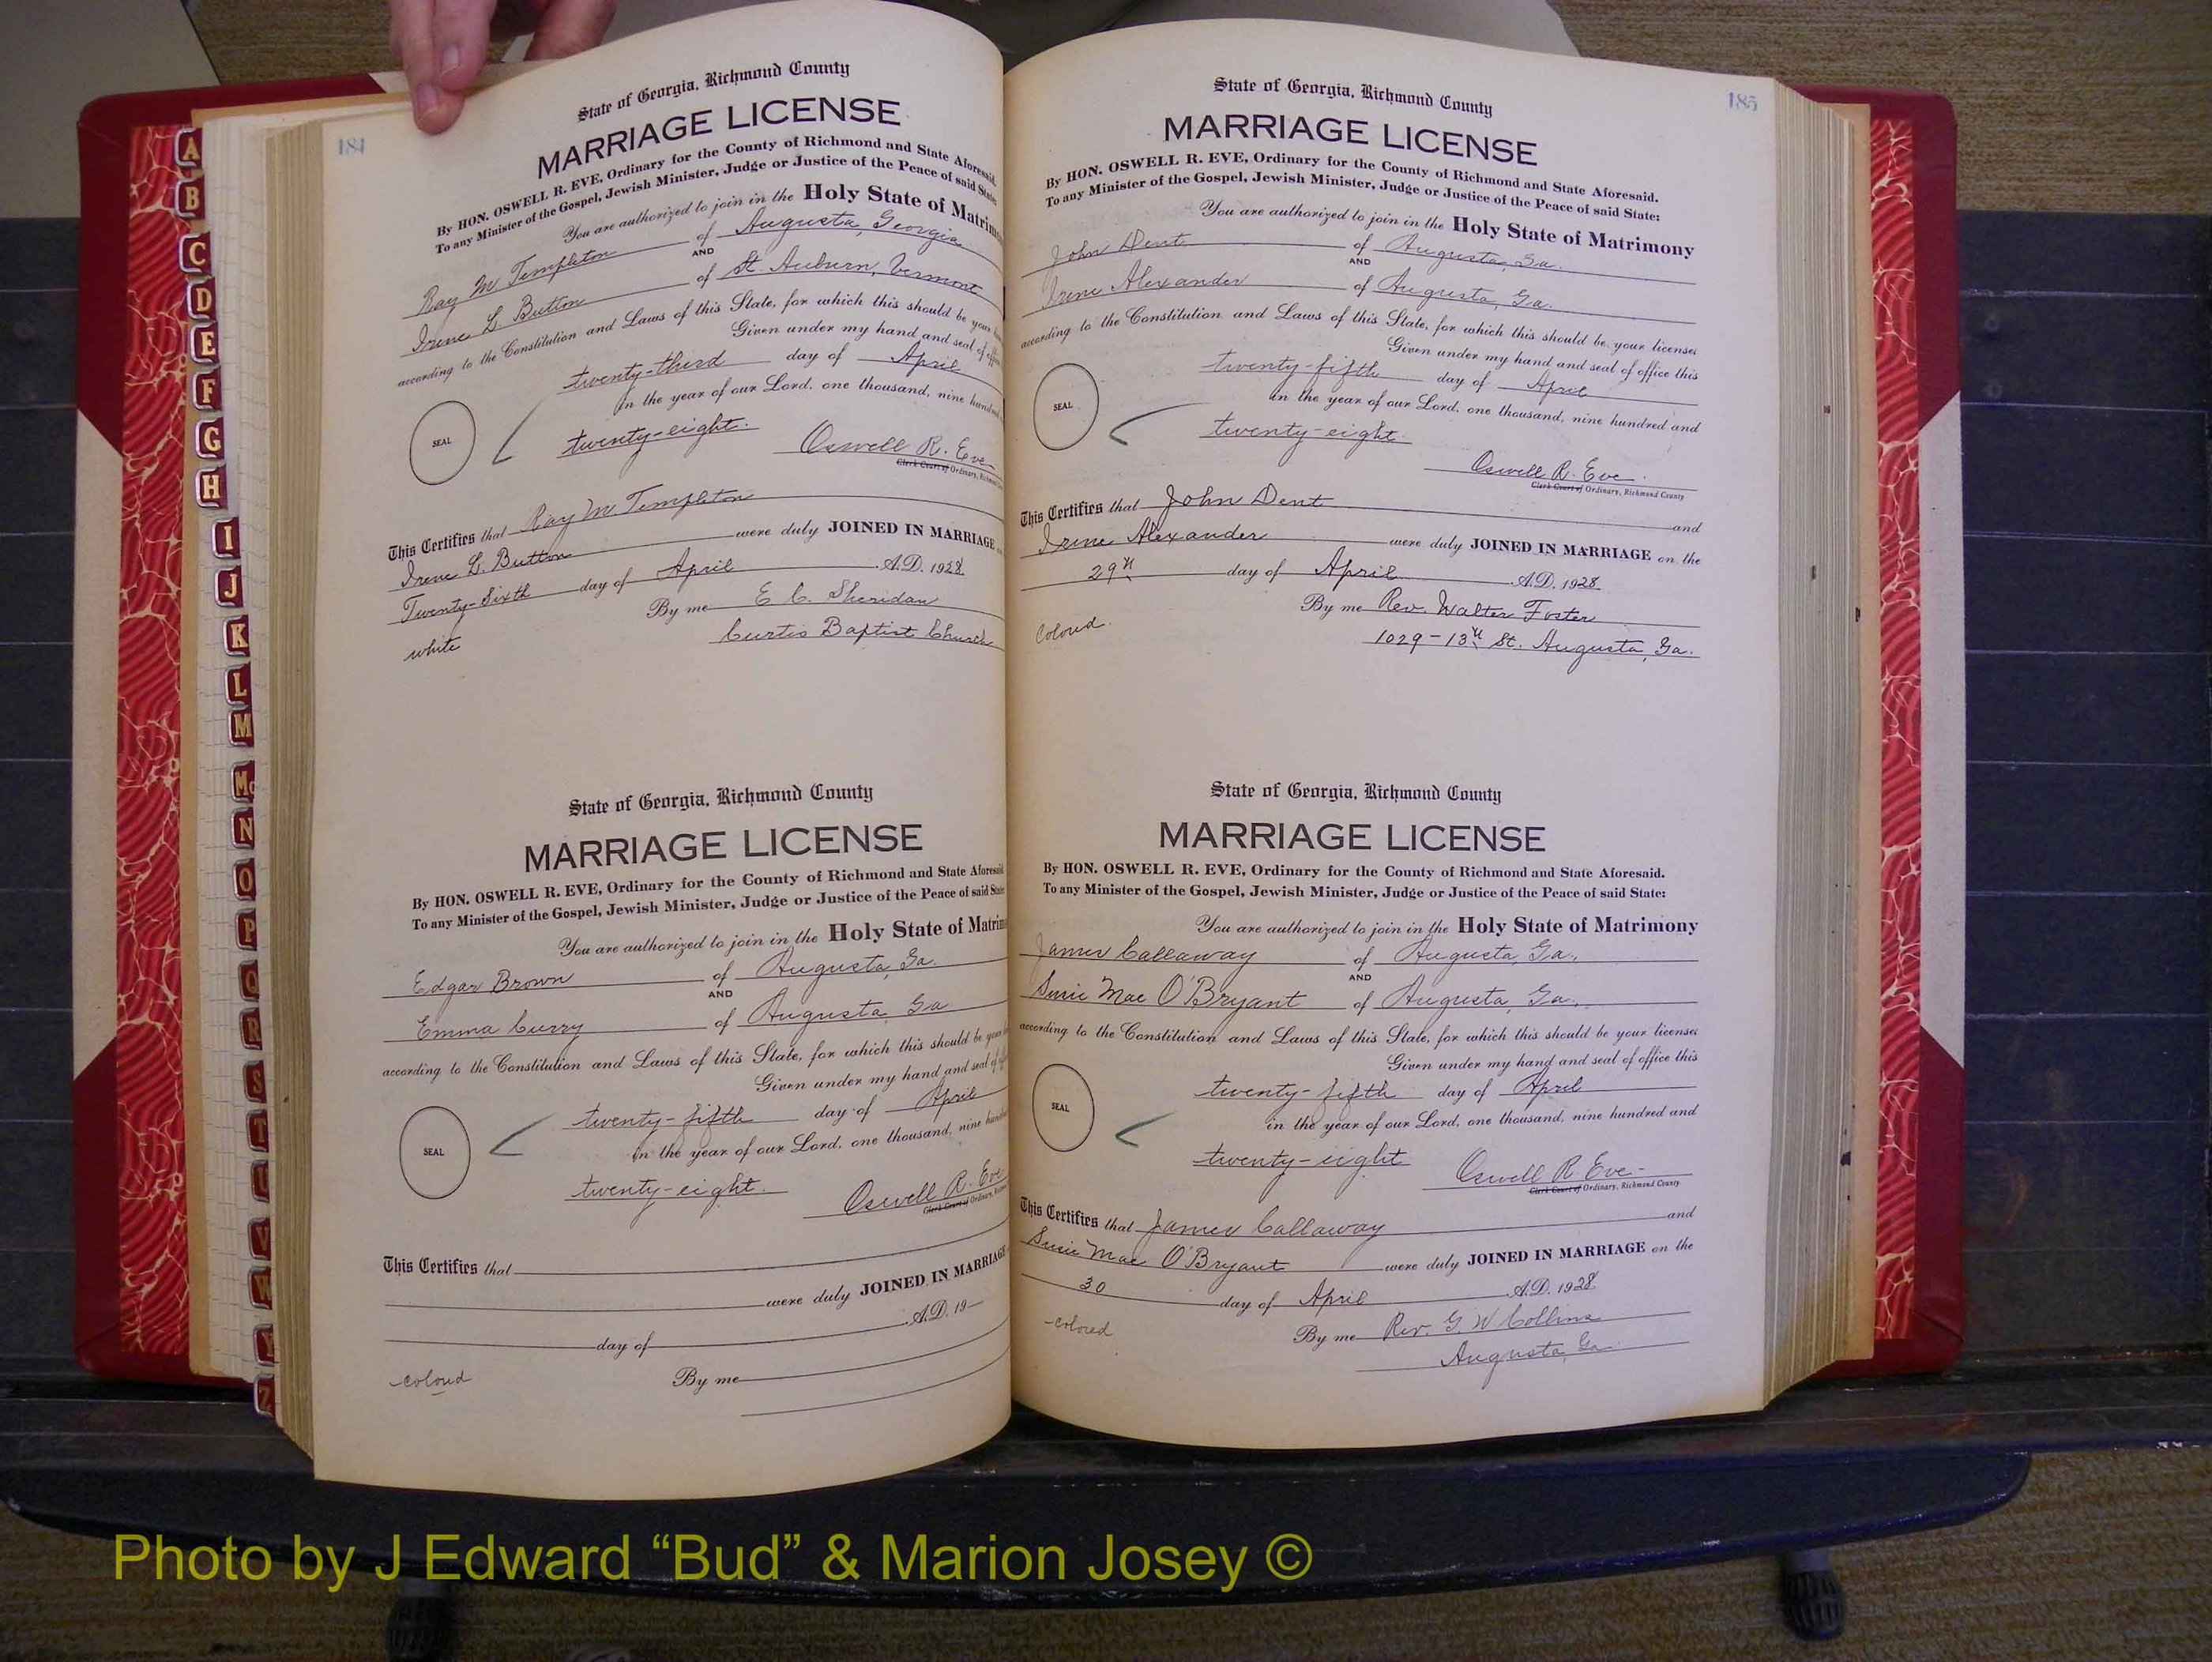 184
State of Georgia, Richmond County
MARRIAGE LICENSE
By HON. OSWELL R. EVE, Ordinary for the County of Richmond and State Aforesaid.
To any Minister of the Gospel, Jewish Minister, Judge or Justice of the Peace of said State:
You are authorized to join in the Holy State of Matrimo
Ray M Templeton of Augusta, Georgia
AND
Irene L. Button of St. Auburn, Vermont
according to the Constitution and Laws of this State, for which this should be your
Given under my hand and seal of
twenty-third day of April
in the year of our Lord, one thousand, nine hundred
SEAL
twenty-eight.
Oswell R. Eve
Clerk Court of Ordinary, Richmond
This Certifies that Ray M Templeton
Irene L. Button were duly JOINED IN MARRIAGE
Twenty-Sixth day of April A.D. 1928
By me E C. Sheridan
white
Curtis Baptist Church
State of Georgia, Richmond County
MARRIAGE LICENSE
By HON. OSWELL R. EVE, Ordinary for the County of Richmond and State Aforesaid
To any Minister of the Gospel, Jewish Minister, Judge or Justice of the Peace of said State
You are authorized to join in the Holy State of Matrim
Edgar Brown of Augusta, Ga.
AND
Emma Curry of Augusta, Ga
according to the Constitution and Laws of this State, for which this should be your
Given under my hand and seal of
twenty-fifth day of April
in the year of our Lord, one thousand, nine
SEAL
twenty-eight.
Oswell R. Eve
Clerk Court of Ordinary,
This Certifies that
were duly JOINED IN MARRIAGE
day of A.D. 19
colored
By me
185
State of Georgia, Richmond County
MARRIAGE LICENSE
By HON. OSWELL R. EVE, Ordinary for the County of Richmond and State Aforesaid.
To any Minister of the Gospel, Jewish Minister, Judge or Justice of the Peace of said State:
You are authorized to join in the Holy State of Matrimony
John Dent of Augusta, Ga.
AND
Irene Alexander of Augusta, Ga.
according to the Constitution and Laws of this State, for which this should be your licenses
Given under my hand and seal of office this
twenty-fifth day of April
in the year of our Lord, one thousand, nine hundred and
SEAL
twenty-eight.
Oswell R. Eve.
Clerk Court of Ordinary, Richmond County
This Certifies that John Dent and
Irene Alexander were duly JOINED IN MARRIAGE on the
29th day of April A.D. 1928
By me Rev. Walter Foster
Colored.
1029-13th St. Augusta, Ga.
State of Georgia, Richmond County
MARRIAGE LICENSE
By HON. OSWELL R. EVE, Ordinary for the County of Richmond and State Aforesaid.
To any Minister of the Gospel, Jewish Minister, Judge or Justice of the Peace of said State:
You are authorized to join in the Holy State of Matrimony
James Callaway of Augusta, Ga.,
AND
Susie Mae O'Bryant of Augusta, Ga.,
according to the Constitution and Laws of this State, for which this should be your licenses
Given under my hand and seal of office this
twenty-fifth day of April
in the year of our Lord, one thousand, nine hundred and
SEAL
twenty-eight
Oswell R. Eve-
Clerk Court of Ordinary, Richmond County
This Certifies that James Callaway and
Susie Mae O'Bryant were duly JOINED IN MARRIAGE on the
30 day of April A.D. 1928
colored
By me Rev. G. W Collins
Augusta, Ga
A
B
C
D
E
F
G
H
I
J
K
L
M
Mc
N
O
P
Q
R
S
T
U
V
W
Y
Z
Photo by J Edward “Bud” & Marion Josey ©